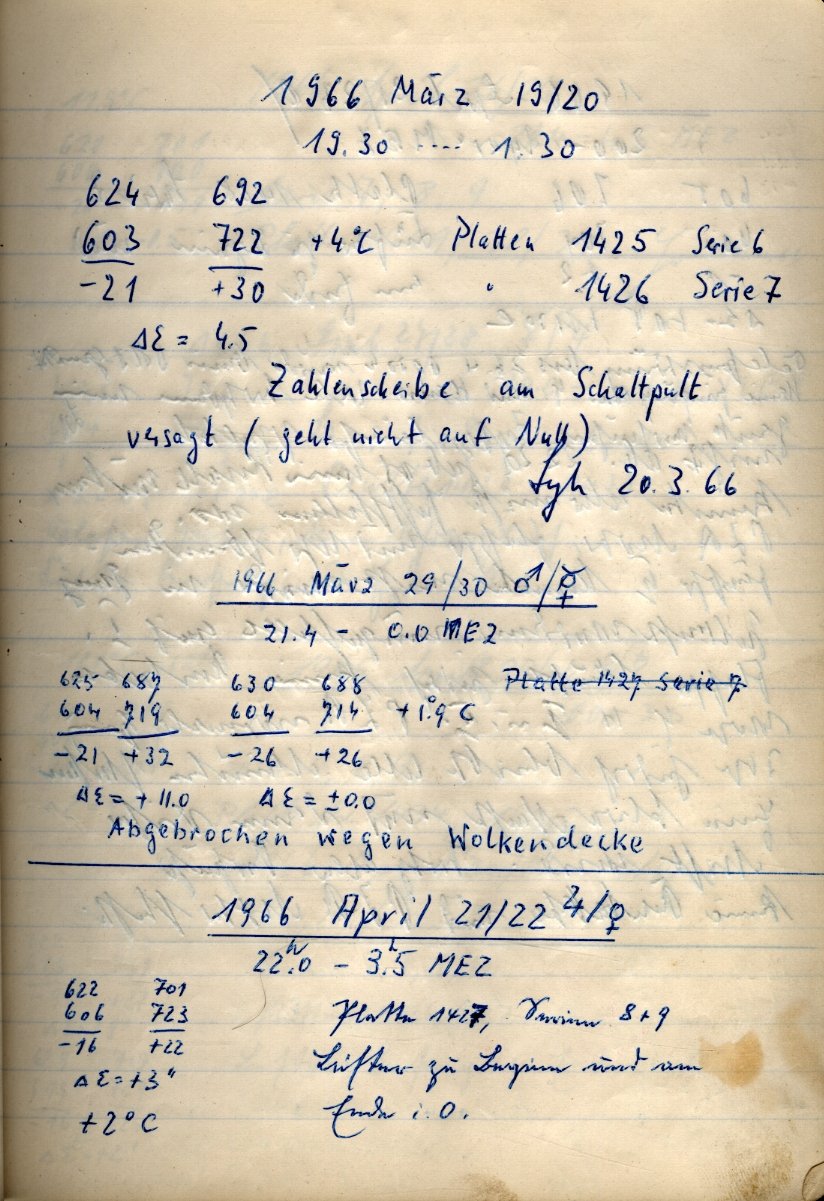 1966 März 19/20
19.30 ···· 1.30
624 692
603 722 +4°C Platten 1425 Serie 6
-21 +30 " 1426 Serie 7
Δε = 4.5
Zahlenscheibe am Schaltpult
versagt (geht nicht auf Null)
20.3.66
1966 März 29/30 ♂/☿
21.4 - 0.0 MEZ
625 687 630 688 Platte 1427 Serie 7
604 719 604 714 +1.°9 C
-21 +32 -26 +26
Δε = +11.0 Δε = ±0.0
Abgebrochen wegen Wolkendecke
1966 April 21/22 ♃/♀
22.ʰ0 - 3.ʰ5 MEZ
622 701
606 723 Platte 1427, Serien 8+9
-16 +22
Δε = +3" zu Beginn und am
+2°C Ende i.O.